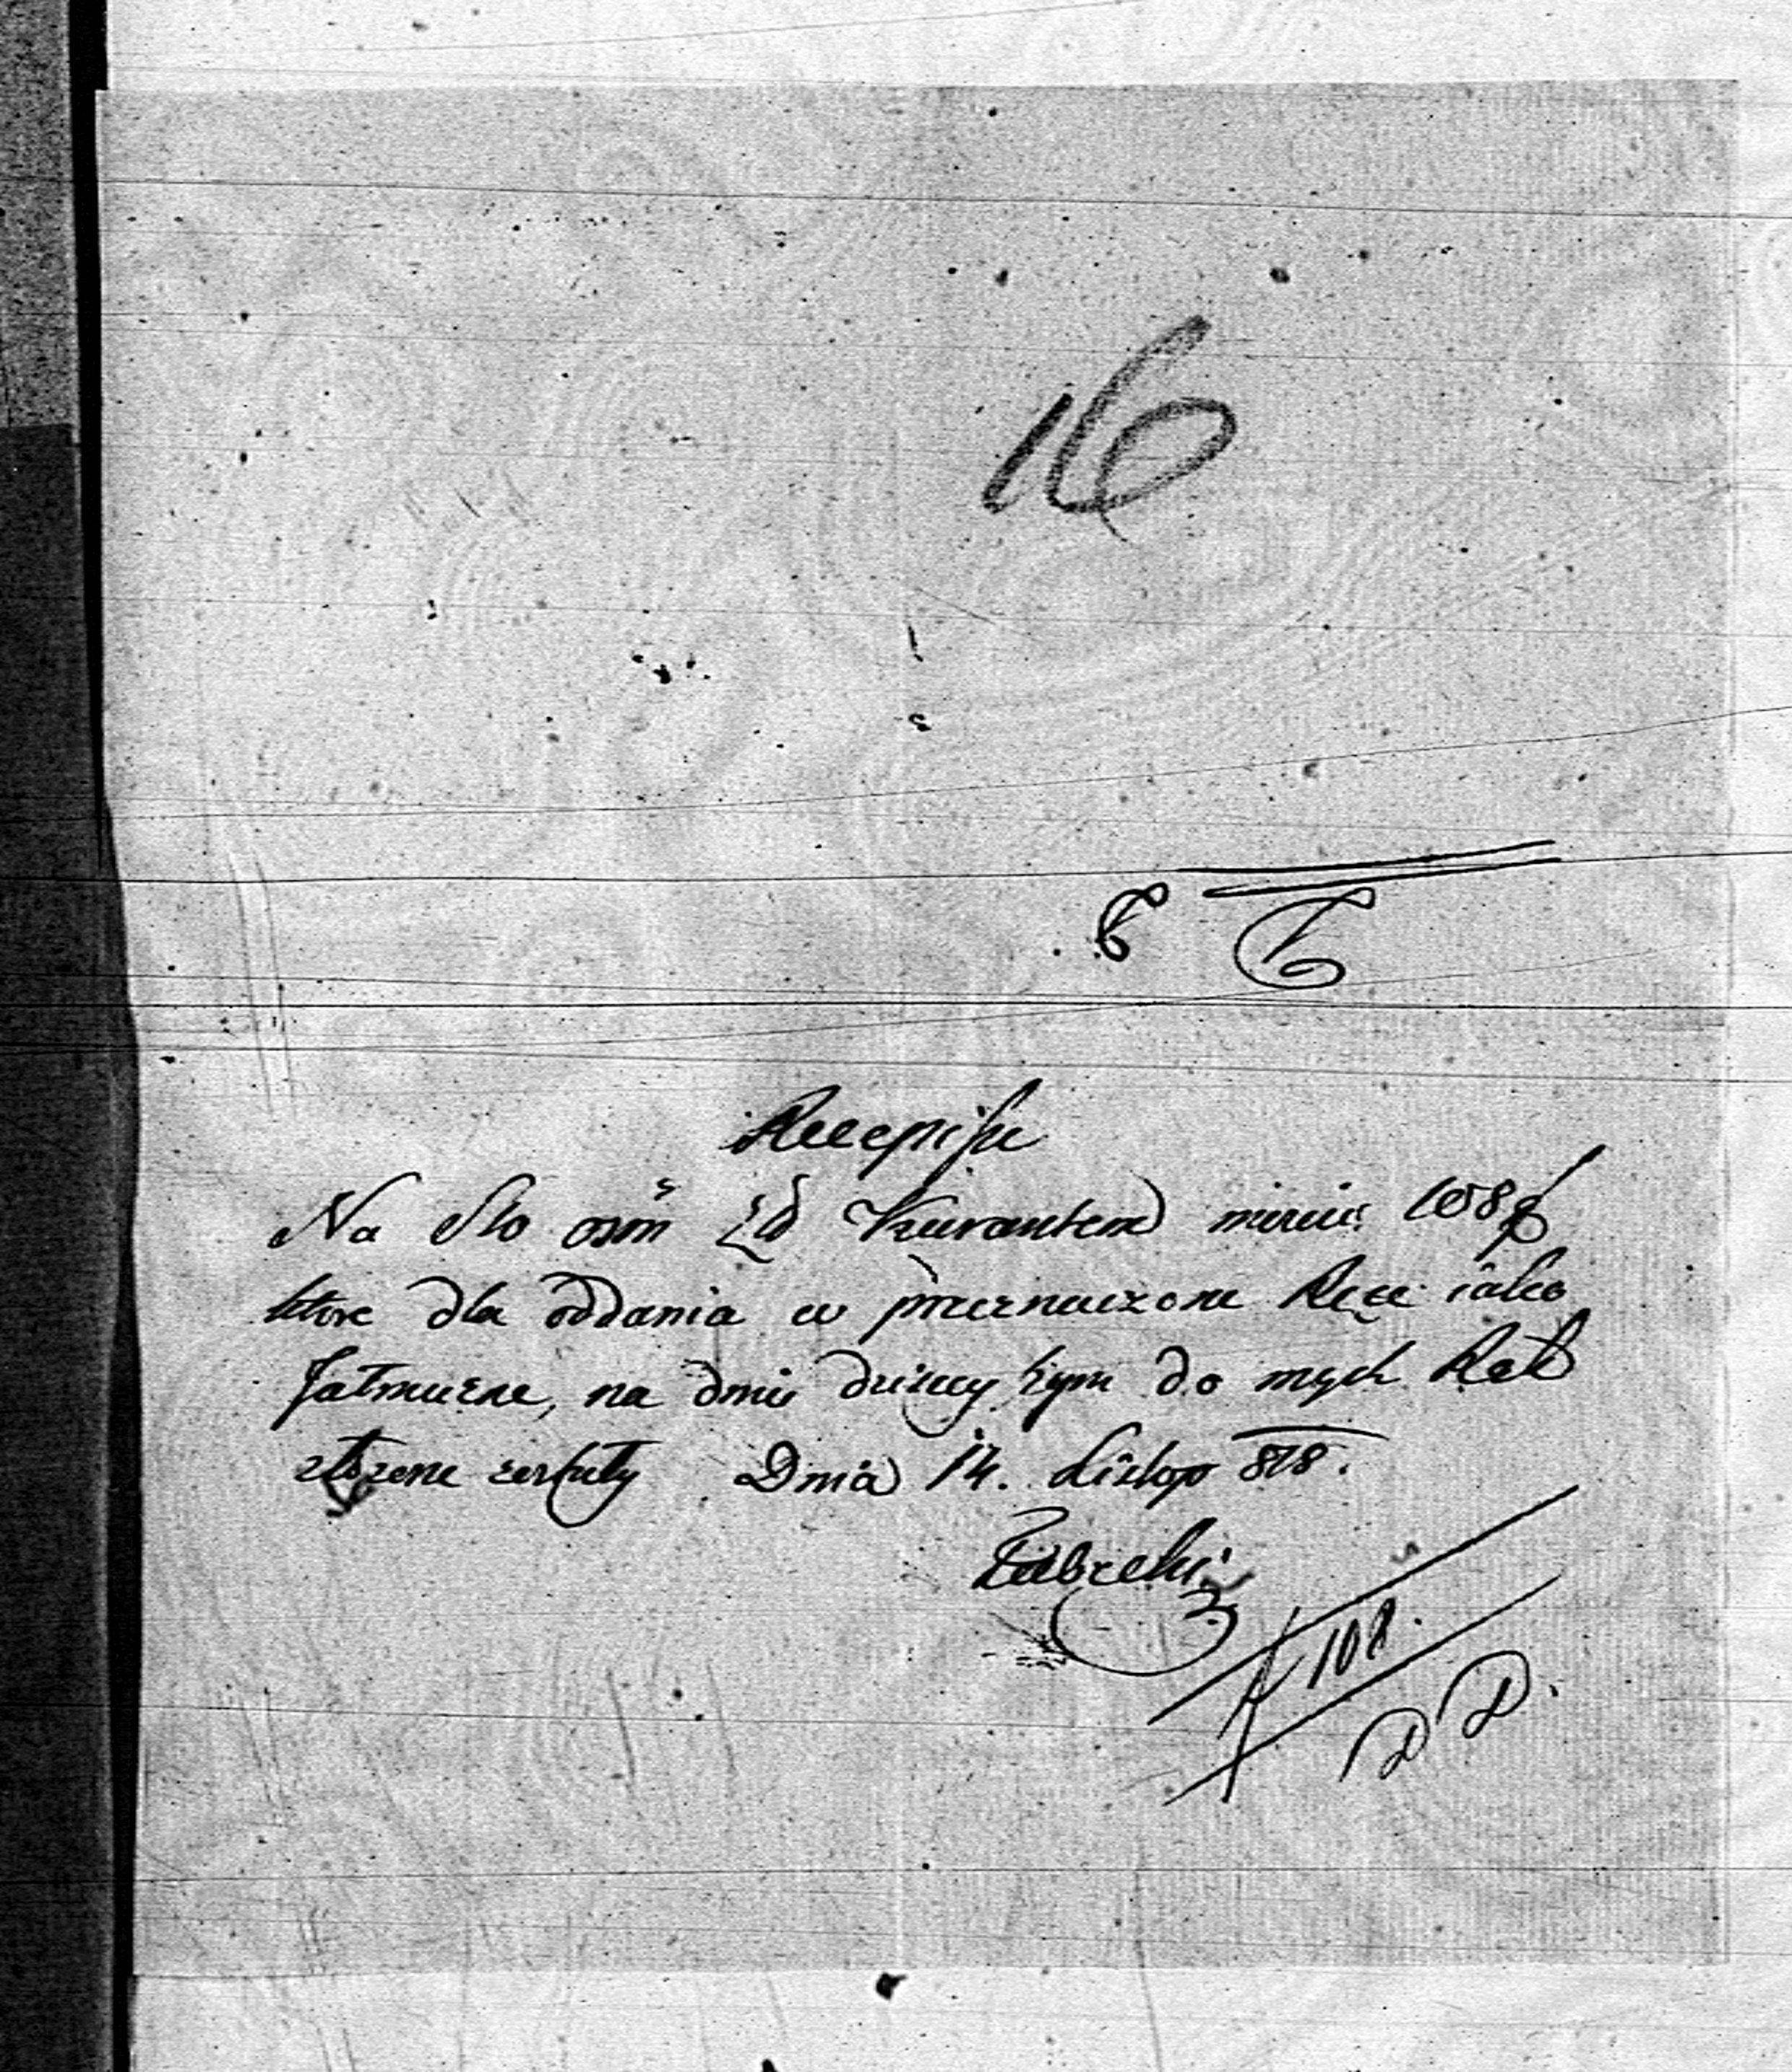 16
Recepisse
Na Sto osm Zł Kurantem 108
które dla oddania w przeznaczone Ręce iako
Jałmużne, na dniu dzisieyszym do mych Rąk
złożone Dnia 14. Listop 818.
108.
D D.